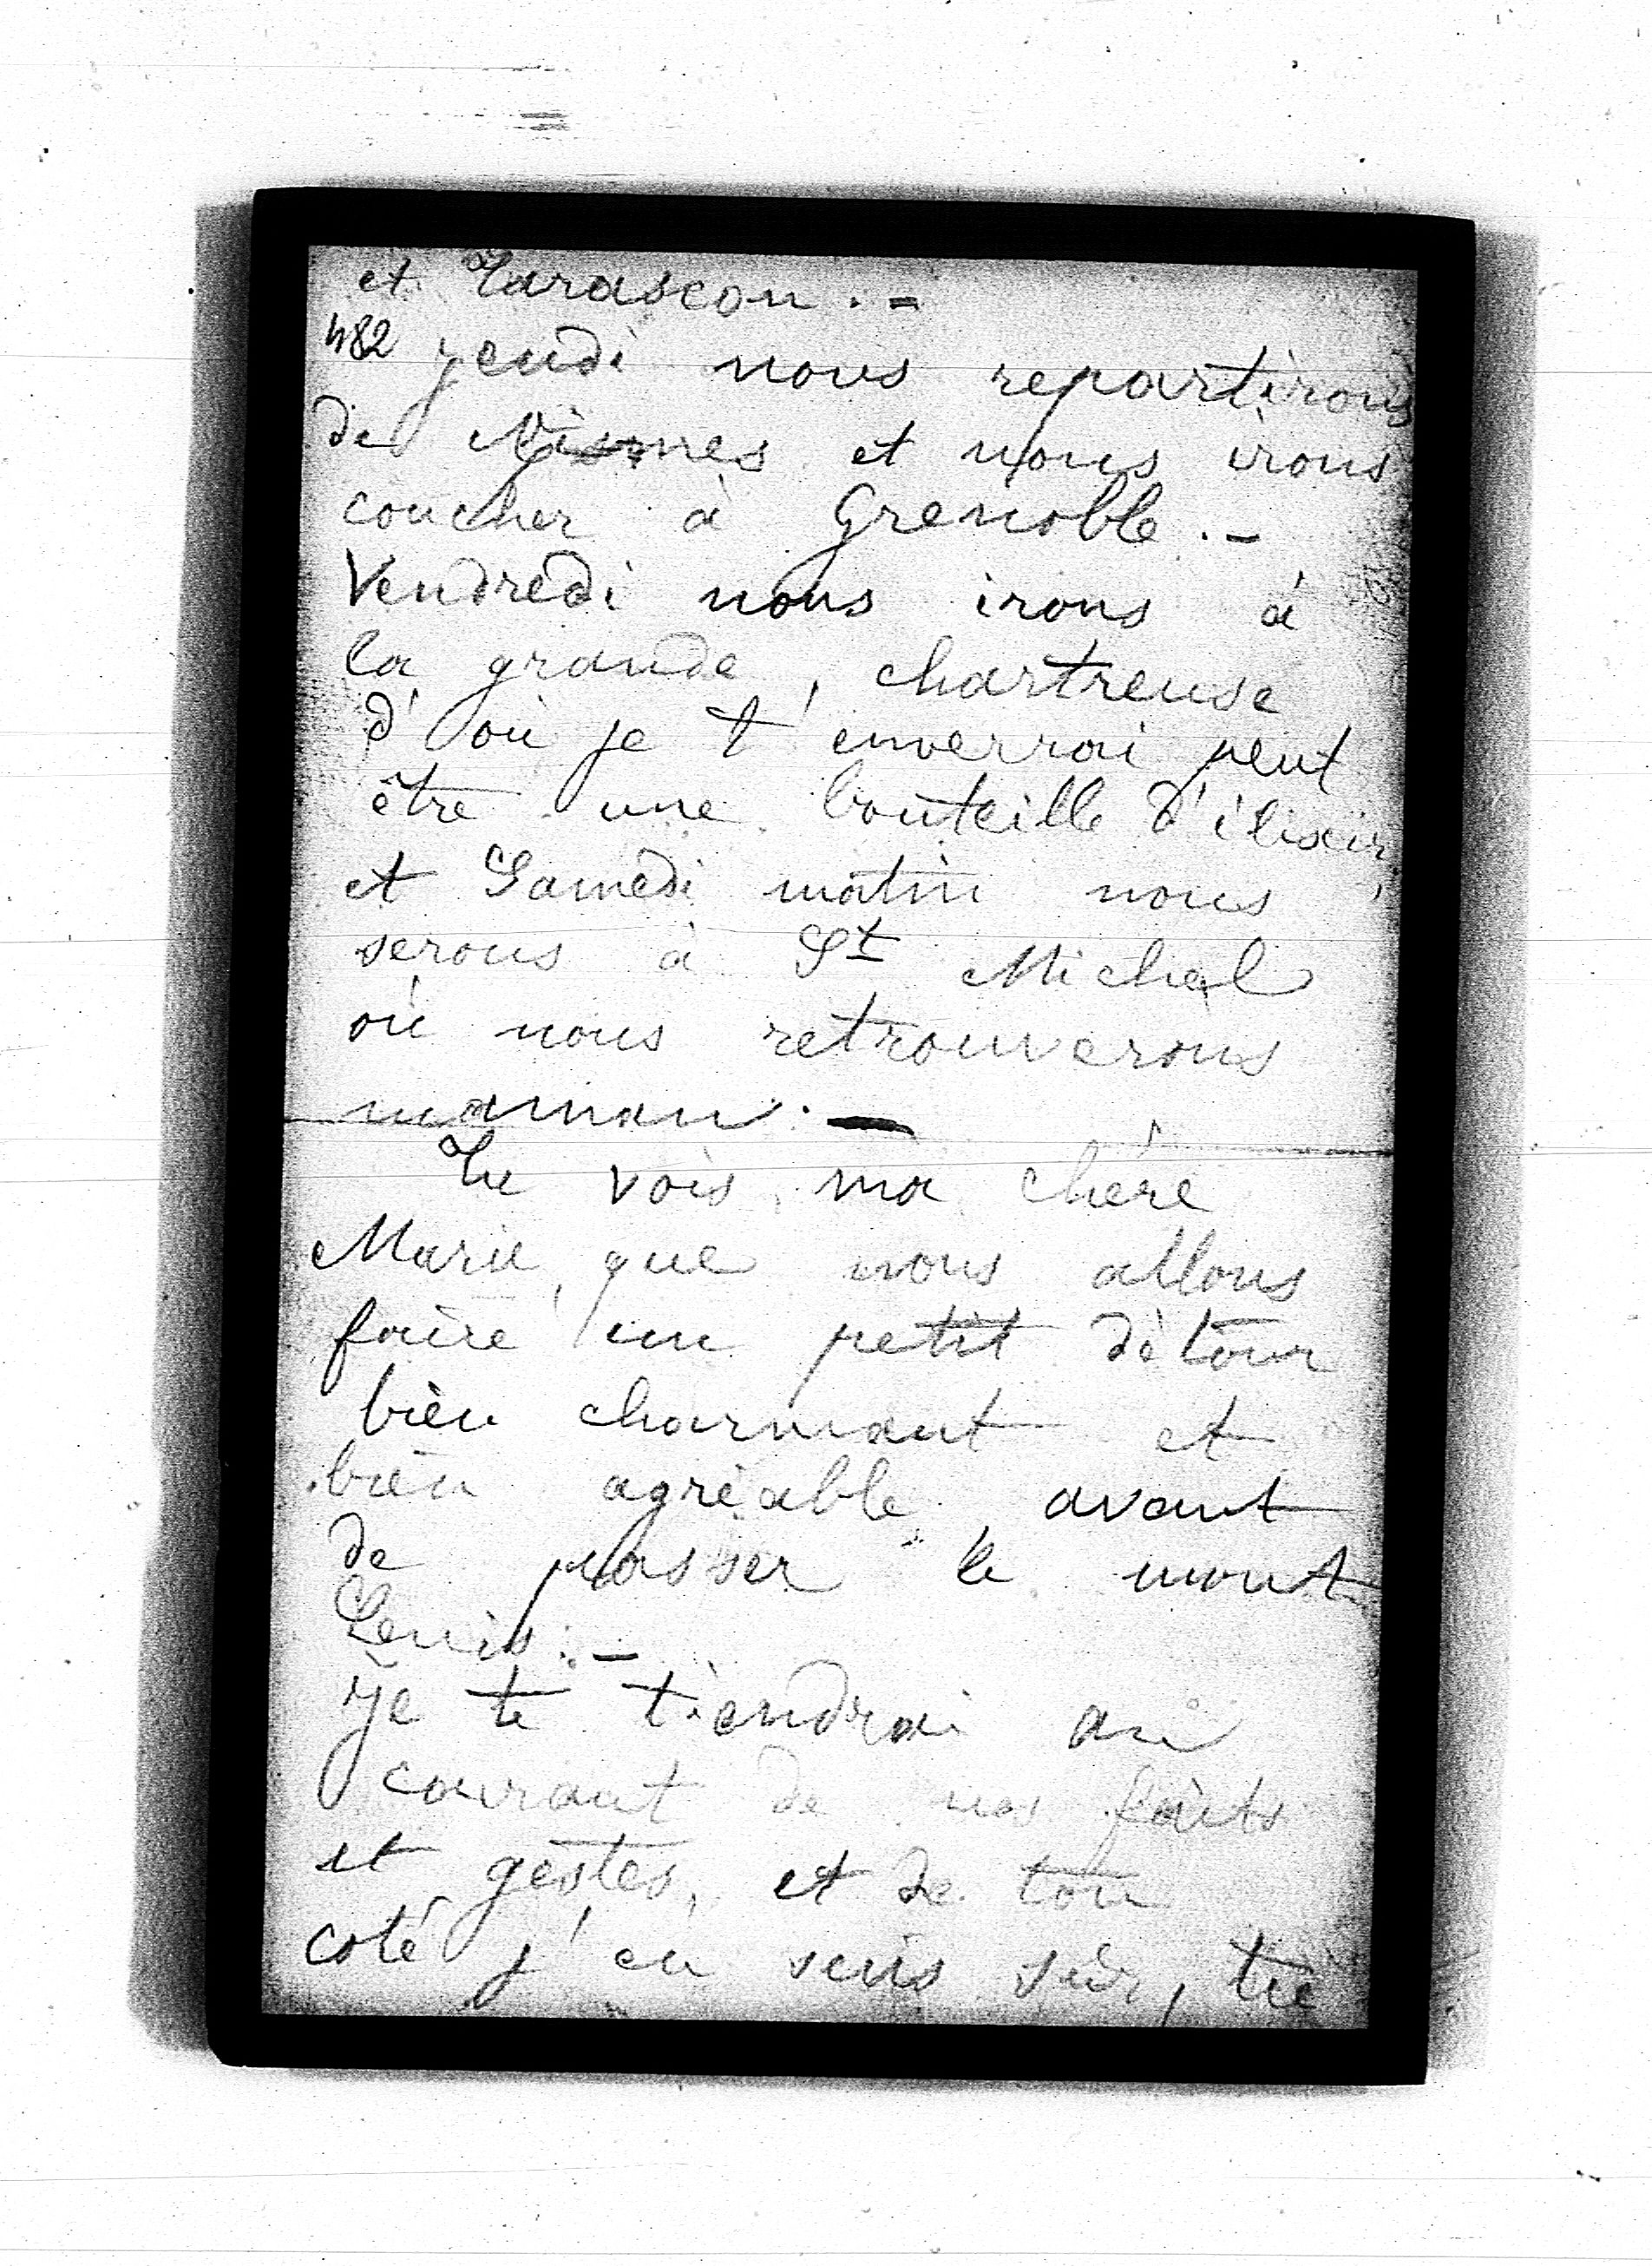 et Tarascon. -
482 jeudi nous repartirons
de Nismes et nous irons
coucher à Grenoble. -
Vendredi nous irons à
la grande chartreuse
d'où je t'enverrai peut
être une bouteille d'élixir,
et Samedi matin nous
serons à St Michel
où nous retrouverons
maman. -
Tu vois, ma chère
Marie, que nous allons
faire un petit détour
bien charmant et
bien agréable avant
de passer le mont
Cenis. -
Je te tiendrai au
courant de nos faits
et gestes, et de ton
coté j'en suis sûr, tu